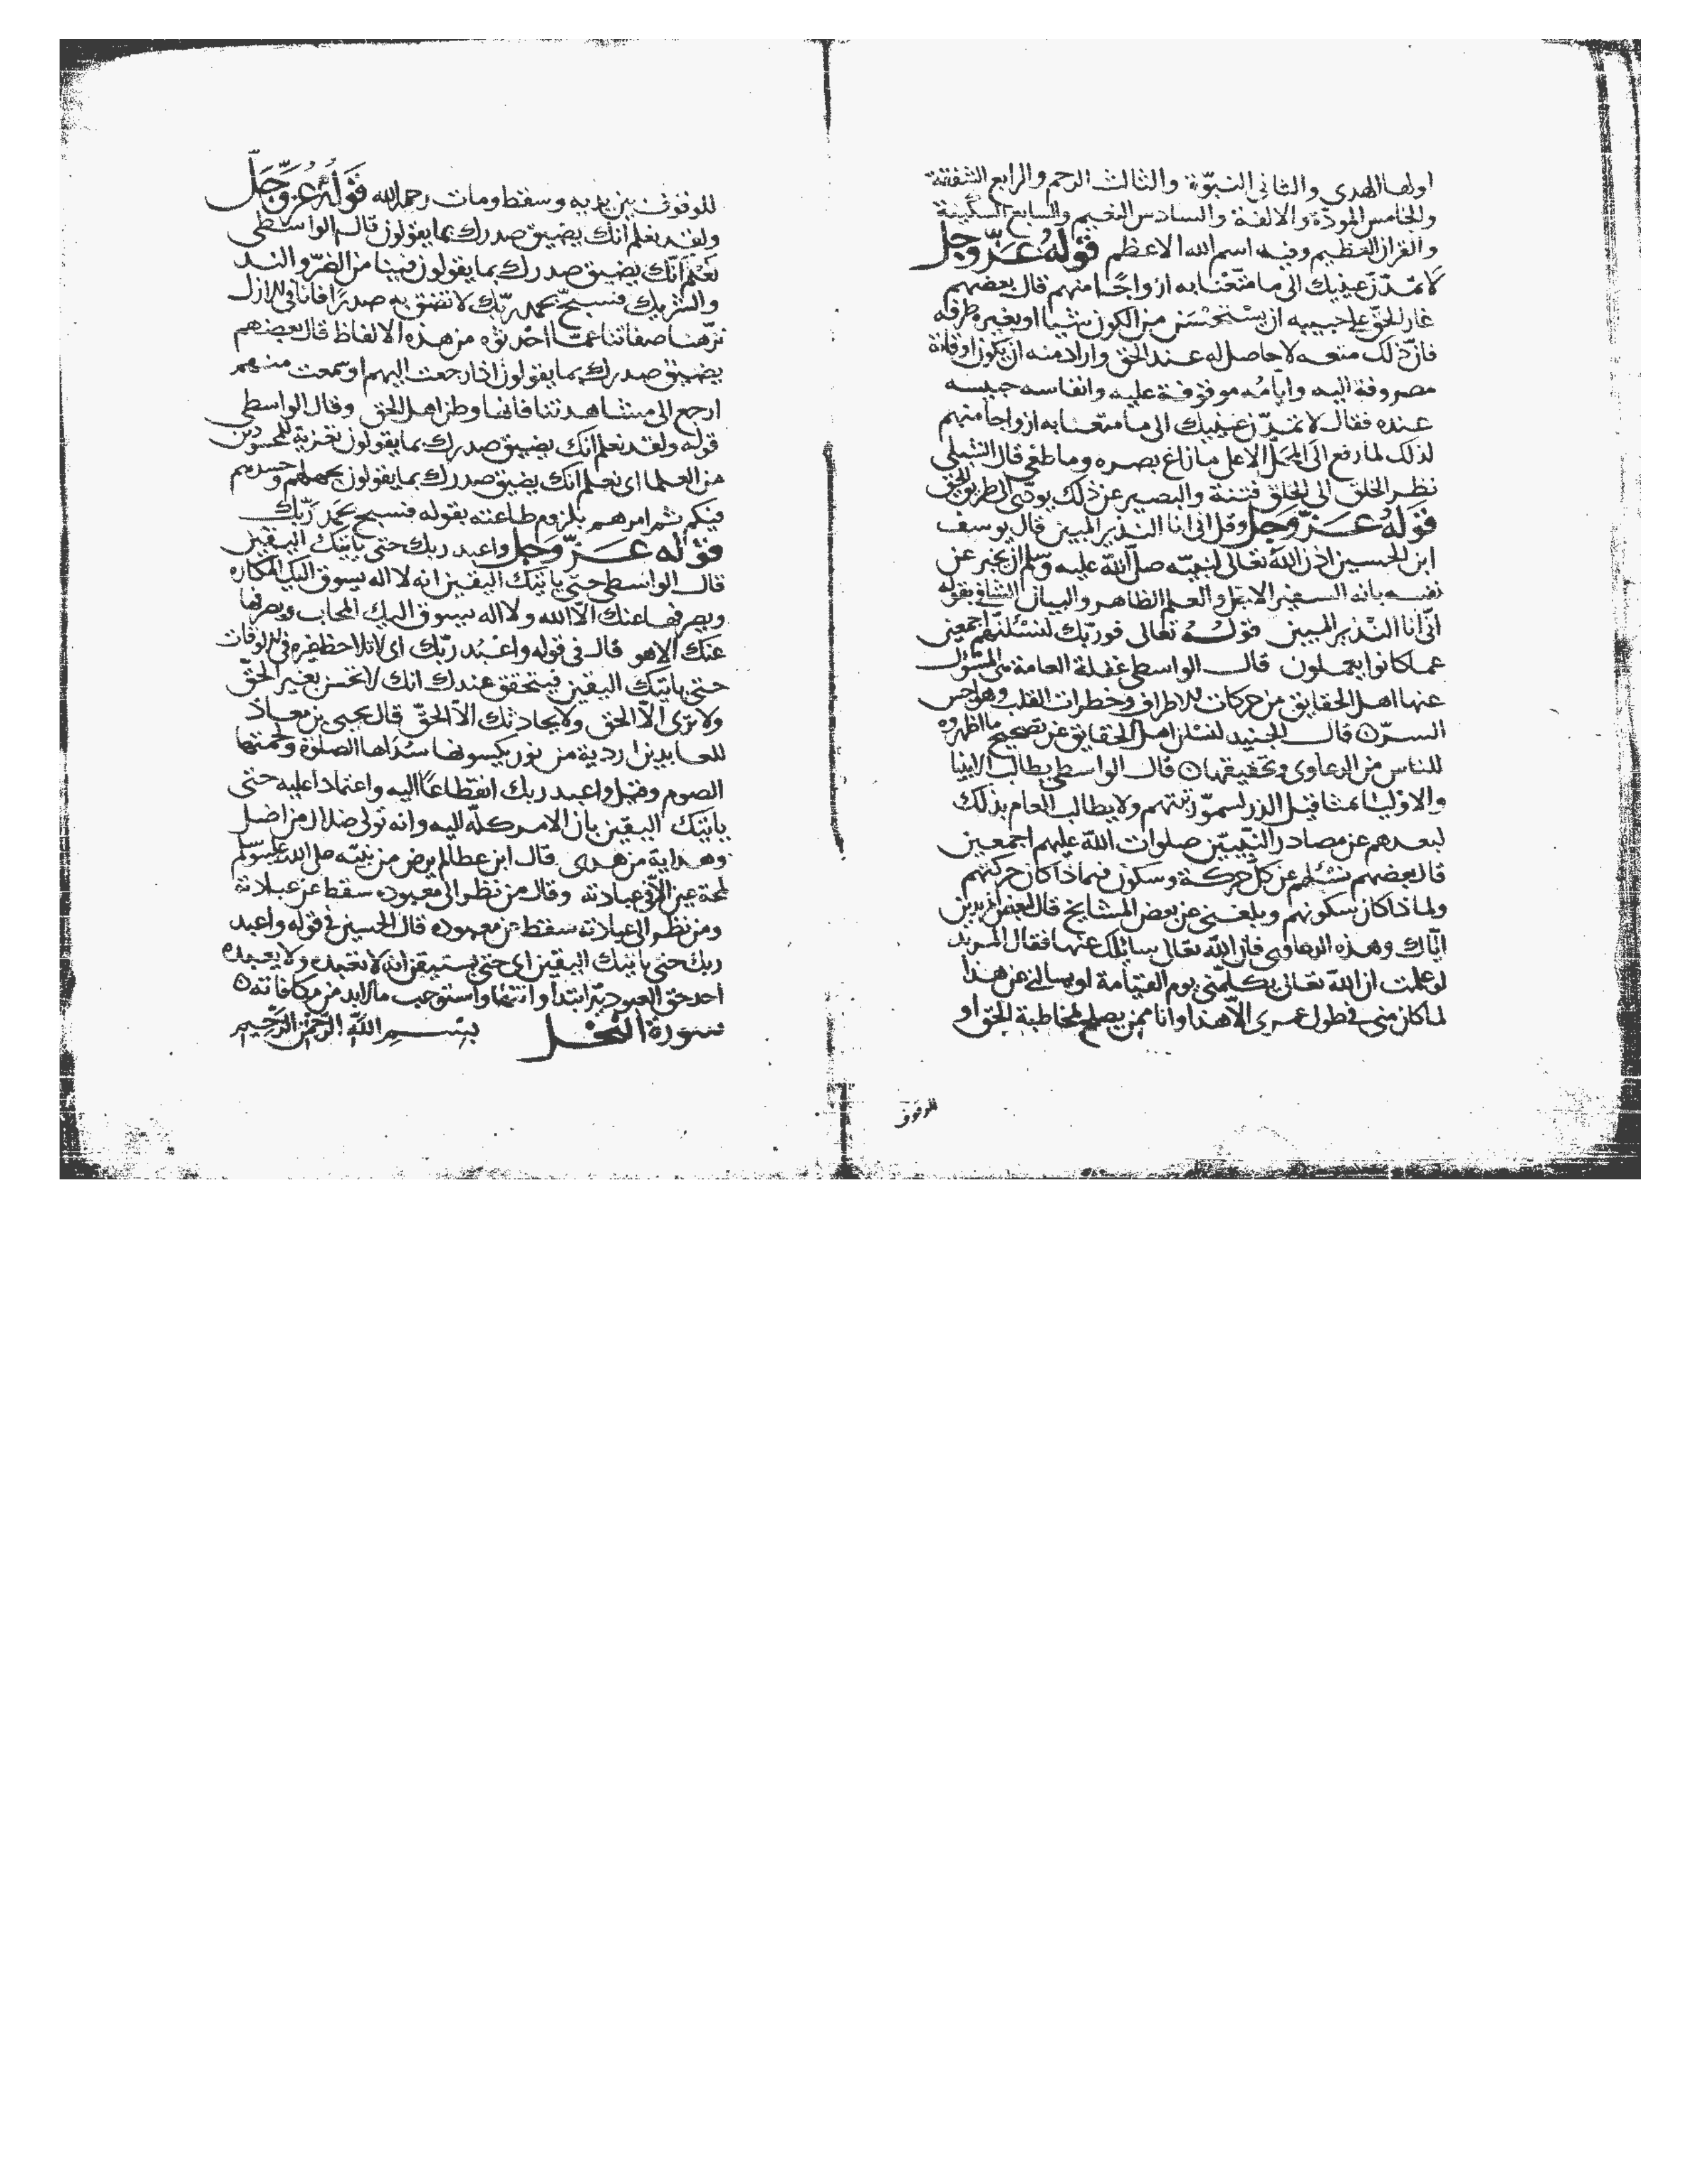 اولها الهدى والثاني النبوّة والثالث الرحم والرابع الشفقة
والخامس المودّة والالفة والسادس النعيم والسابع السكينة
والقران العظيم وفيه اسم الله الاعظم قوله عزّ وجل
لا تمدّنّ عينيك الى ما متّعنا به ازواجًا منهم قال بعضهم
غار الحقّ على حبيبه ان يستحسن من الكون شيا او يعيره طرفه
فان ذلك متعه لا حاصل له عند الحق واراد منه ان يكون اوقاته
مصروفة اليه وايّامه موقوفة عليه وانفاسه حبيسه
عنده فقال لا تمدّن عينيك الى ما متعنا به ازواجا منهم
لذلك لما رفع الى المحلّ الاعلى ما زاغ بصره وما طغى قال الشبلي
نظر الخلق الى الخلق فتنة والبصير عن ذلك يودّى الى طريق الحق
قوله عزّ وجل وقل انى انا النذير المبين قال يوسف
ابن الحسين اذن الله تعالى لنبيّه صلى الله عليه وسلم ان يخبر عن
نفسه بانه السفير الاعلى والعلم الظاهر والبيان الشافي بقوله
انّى انا النذير المبين قوله تعالى فوربّك لنسئلنّهم اجمعين
عما كانوا يعملون قال الواسطي غفلة العامة من المسؤل
عنها اهل الحقايق من حركات الاطراف وخطرات القلب وهواجس
السرّ ه قال الجنيد لنسئلن اهل الحقايق عن تصحيح ما اظهروه
للناس من الدعاوى وتحقيقها ه قال الواسطي يطالب الانبيا
والاوليا بمثاقيل الذر لسموّ رتبتهم ولا يطالب العام بذلك
لبعدهم عن مصادر النبيّين صلوات الله عليهم اجمعين
قال بعضهم نسئلهم عن كل حركة وسكون فيما ذا كان حركتهم
ولما ذا كان سكونهم وبلغني عن بعض المشايخ قال لبعض مريدين
ايّاك وهذه الدعاوى فان الله تعالى سايلك عنها فقال المريد
لو علمت ان الله تعالى يكلّمني يوم القيامة او يسالني عن هذا
لما كان منى في طول عمرى الّا هذا وانا ممن يصلح لمخاطبة الحق او
للوقوف
للوقوف بين يديه وسقط ومات رحمه الله قوله عزّ وجلّ
ولقد نعلم انك يضيق صدرك بما يقولون قال الواسطي
نعلم انّك يضيق صدرك بما يقولون فينا من الضرّ والند
والشريك فسبحّ بحمد ربّك لا تضق به صدرًا فانا في الازل
نزّهنا صفاتنا عمّا احدثوه من هذه الالفاظ قال بعضهم
يضيق صدرك بما يقولون اذا رجعت اليهم او سمعت منهم
ارجع الى مشاهدتنا فانها وطن اهل الحق وقال الواسطي
قوله ولقد نعلم انك يضيق صدرك بما يقولون تعزية للمحسودين
من العلما اى نعلم انك يضيق صدرك بما يقولون بجهلهم وحسدهم
فيكم ثم امرهم بلزوم طاعته بقوله فسبح بحمد ربّك
قوله عزّ وجل واعبد ربك حتى ياتيك اليقين
قال الواسطي حتى ياتيك اليقين انه لا اله يسوق اليك المكاره
ويصرفها عنك الّا الله ولا اله يسوق اليك المحاب ويصرفها
عنك الا هو قال في قوله واعبد ربّك اى لا تلاحظ غيره في الاوقات
حتى ياتيك اليقين فيتحقق عندك انك لا تحس بغير الحقّ
ولا ترى الّا الحق ولا يحادثك الّا الحقّ قال يحيى بن معاذ
للعابدين اردية من نور يكسونها سداها الصلوة ولحمتها
الصوم وقيل واعبد ربك انقطاعًا اليه واعتمادا عليه حتى
ياتيك اليقين بان الامر كلّه اليه وانه تولى ضلال من اضل
وهداية من هدى قال ابن عطا لم يرض من نبيّه صلى الله عليه وسلم
لمحة عين الّا في عبادته وقال من نظر الى معبوده سقط عن عبادته
ومن نظر الى عبادته سقط عن معبوده قال الحسين في قوله واعبد
ربك حتى ياتيك اليقين اى حتى يستيقن انه لا تعبده ولا يعبده
احد حق العبوديّة ابتدا وانتها واستوجب ما لا بد من مكافاته ه
سورة النحل بسم الله الرحمن الرحيم